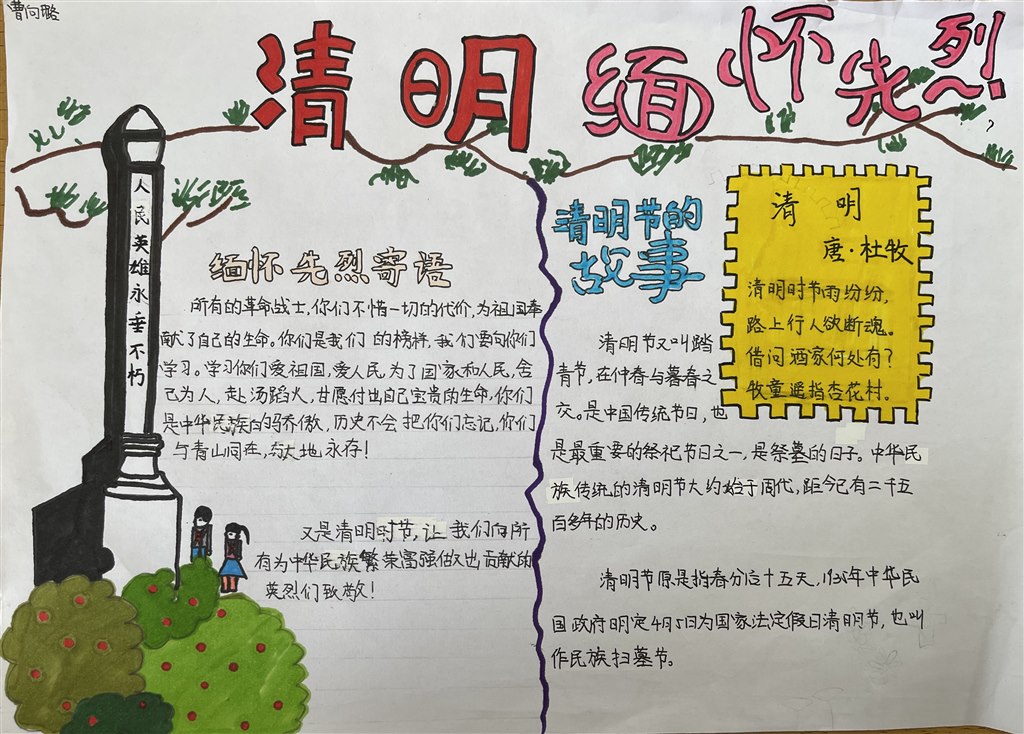 曹向璐
清明
缅怀先烈!
人民英雄永垂不朽
缅怀先烈寄语
所有的革命战士,你们不惜一切的代价,为祖国奉
献了自己的生命。你们是我们的榜样,我们要向你们
学习。学习你们爱祖国,爱人民,为了国家和人民,舍
己为人,赴汤蹈火,甘愿付出自己宝贵的生命,你们
是中华民族的骄傲,历史不会把你们忘记,你们
与青山同在,与大地永存!
又是清明时节,让我们向所
有为中华民族繁荣富强做出贡献的
英烈们致敬!
清明节的
故事
清明节又叫踏
青节,在仲春与暮春之
交。是中国传统节日,也
是最重要的祭祀节日之一,是祭墓的日子。中华民
族传统的清明节大约始于周代,距今已有二千五
百多年的历史。
清明节原是指春分后十五天,1935年中华民
国政府明定4月5日为国家法定假日清明节,也叫
作民族扫墓节。
清 明
唐·杜牧
清明时节雨纷纷,
路上行人欲断魂。
借问酒家何处有?
牧童遥指杏花村。